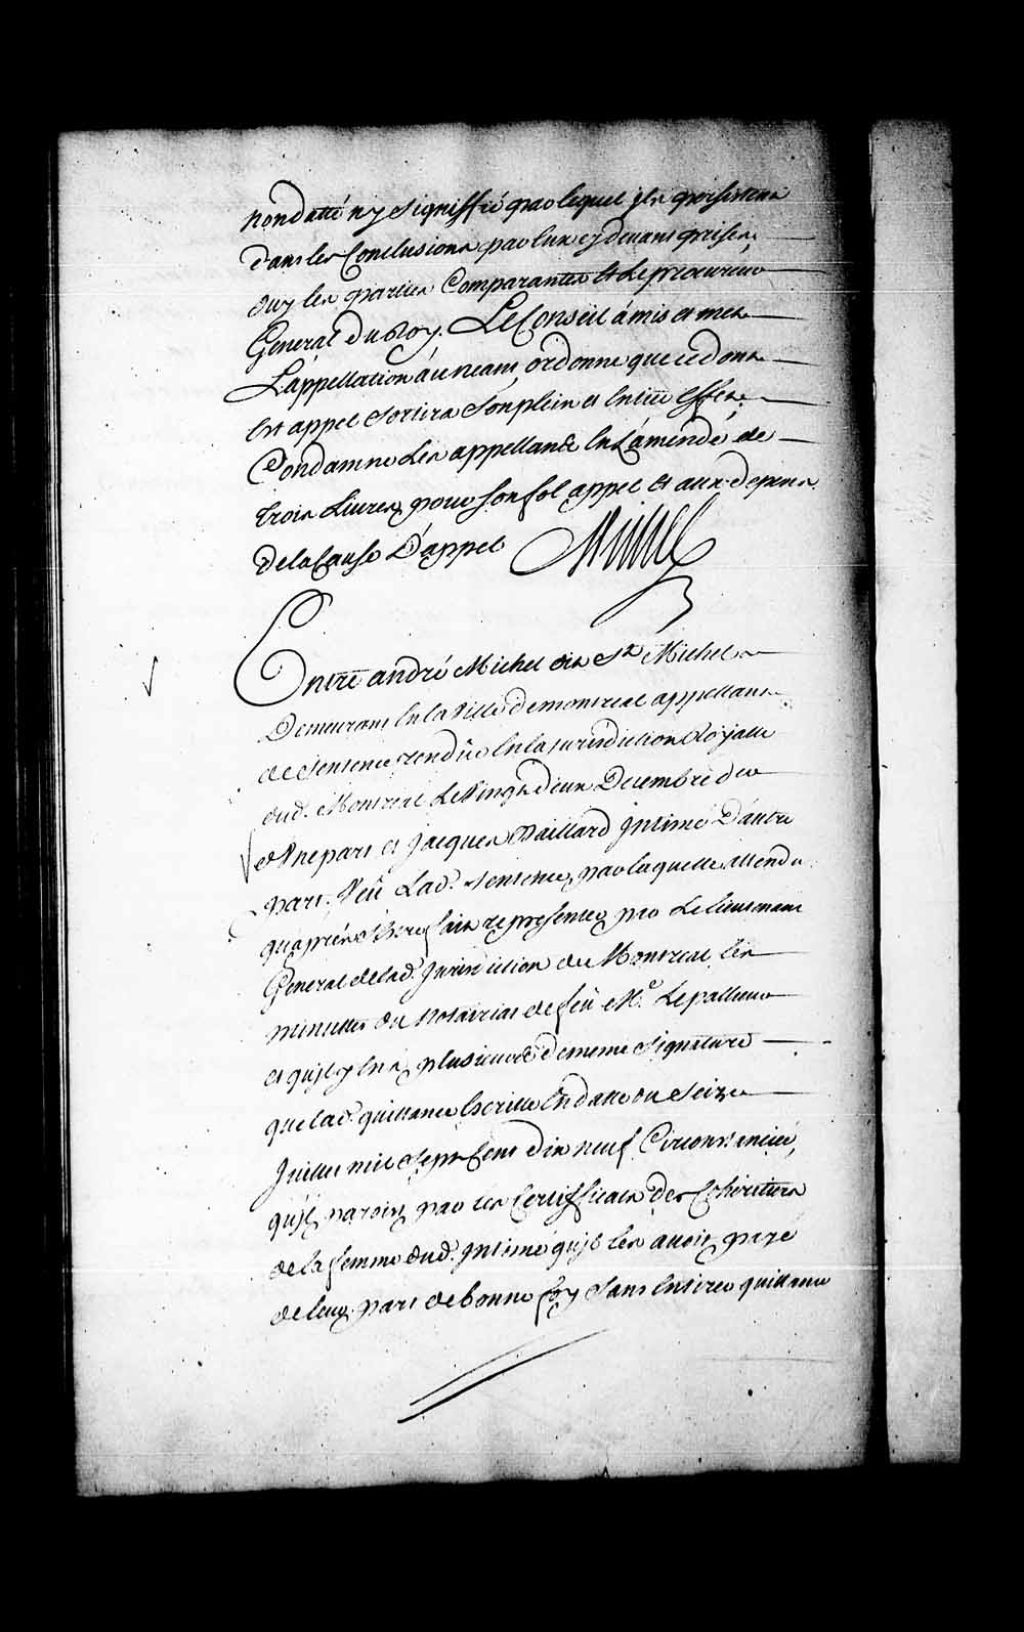 non datté ny signiffié par lequel jls persistent
dans les Conclusions par lux cydevant prises,
ouy les parties Comparantes Et Le procureur
General du Roy. Le Conseil à mis et met
L'appellation au neant, ordonne que ce dont
Est appel sortira son plein et Entier Effet,
Condamne Les appellants En L'amende de
trois Livres pour son fol appel Et aux depens
de la Cause D'appel
Entre andré Michel dit St Michel
Demeurant En la Ville de montreal appellant
de sentence rendüe En la jurisdiction Royalle
dud. Montreal Le Vingt deux Decembre der
d'Une part et Jacques Vaillard Jntimé D'autre
part. Veü Lad. sentence par laquelle attendu
qu'apres s'Estre fait representer par Le lieutenant
General de lad. Jurisdiction de Montreal les
minuttes du Notariat de feü Me. Lepallieur
et qu'jl y En a plusieurs de meme signature
que lad. quittance Ecritte En datte du seize
Juillet mil sept Cent dix neuf Circonstanciée,
qu'jl paroit par les Certifficats des Coheritiers
de la femme dud. Jntimé qu'jl les avoit payé
de leur part de bonne foy sans En tirer quittance